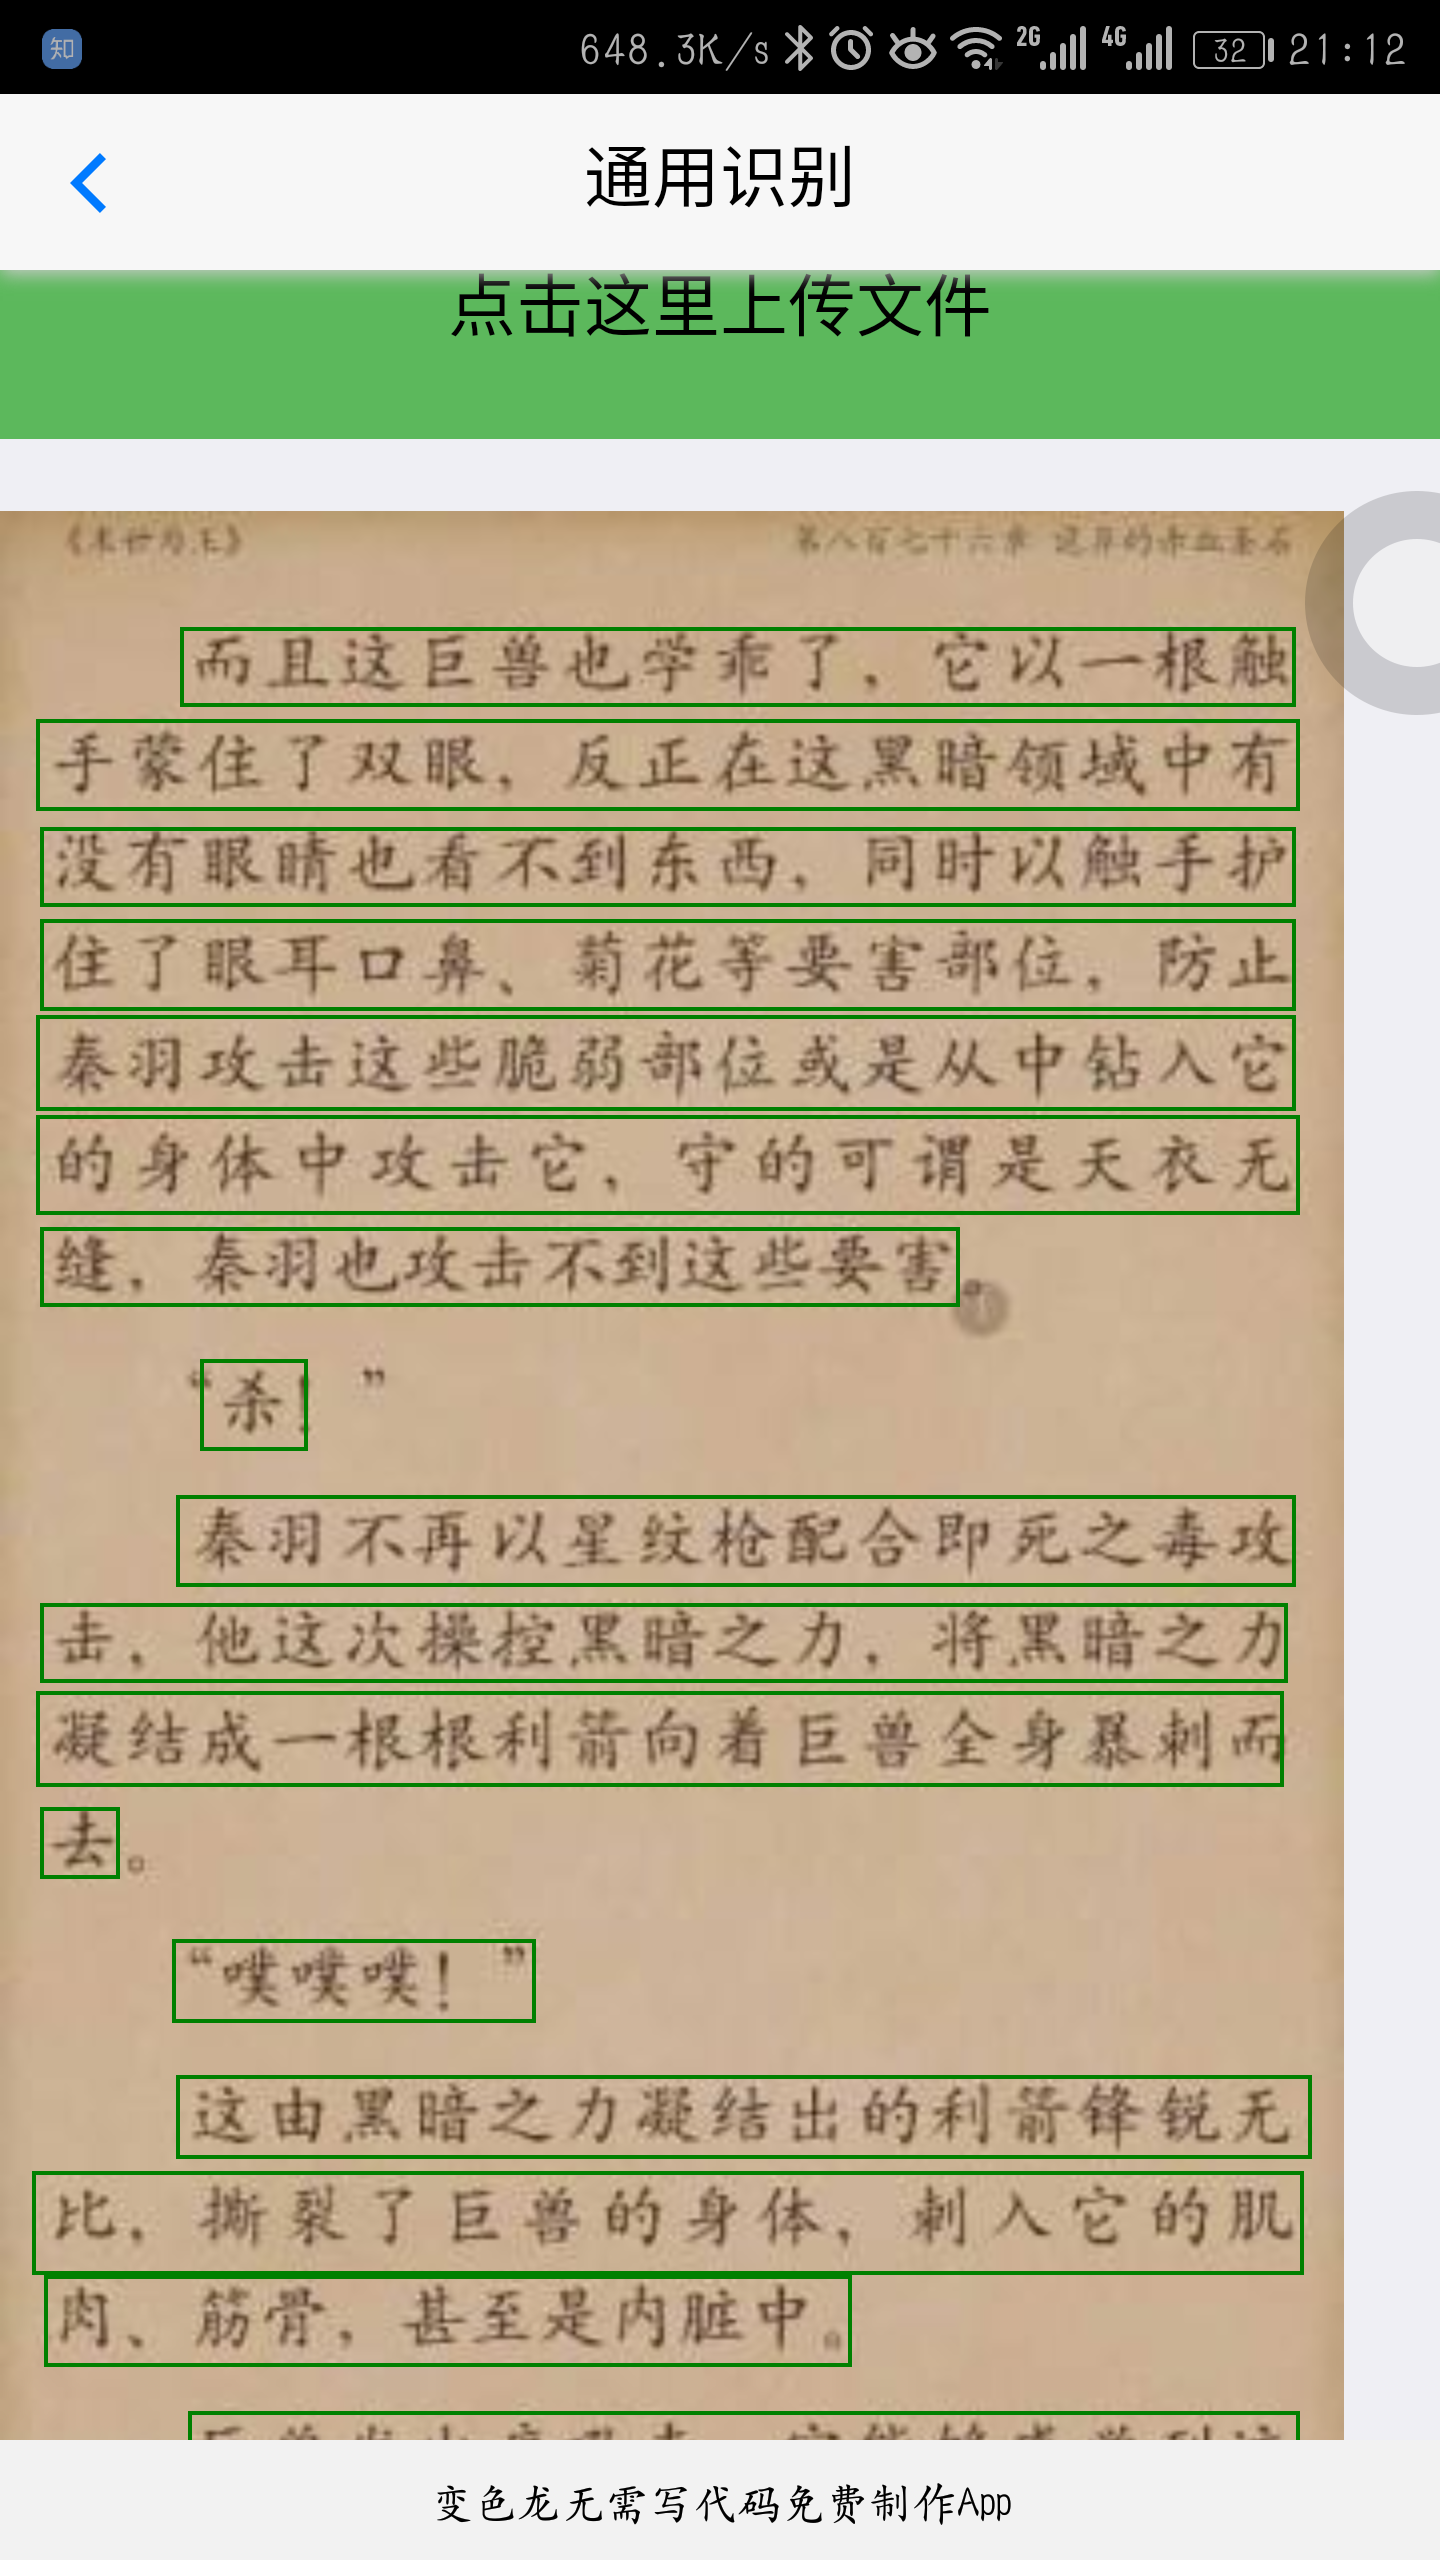 知 648.3K/s 2G 4G 32 21:12
通用识别
点击这里上传文件
第八百七十六章
而且这巨兽也学乖了，它以一根触
手蒙住了双眼，反正在这黑暗领域中有
没有眼睛也看不到东西，同时以触手护
住了眼耳口鼻、菊花等要害部位，防止
秦羽攻击这些脆弱部位或是从中钻入它
的身体中攻击它，守的可谓是天衣无
缝，秦羽也攻击不到这些要害。
“杀！”
秦羽不再以星纹枪配合即死之毒攻
击，他这次操控黑暗之力，将黑暗之力
凝结成一根根利箭向着巨兽全身暴刺而
去。
“噗噗噗！”
这由黑暗之力凝结出的利箭锋锐无
比，撕裂了巨兽的身体，刺入它的肌
肉、筋骨，甚至是内脏中。
变色龙无需写代码免费制作App